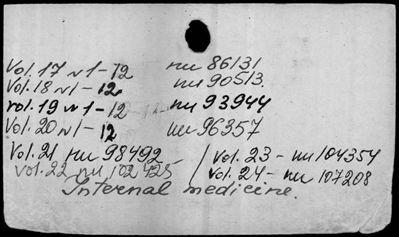 Vol. 17 n 1 - 12 nu 86131
Vol. 18 n 1 - 12 nu 90513.
vol. 19 n 1 - 12 nu 93944
Vol. 20 n 1 - 12 nu 96357
Vol. 21 nu 98492
vol. 22 nu 102425
/ Vol. 23 - nu 104354
Vol. 24 - nu 107208
Internal medicine.